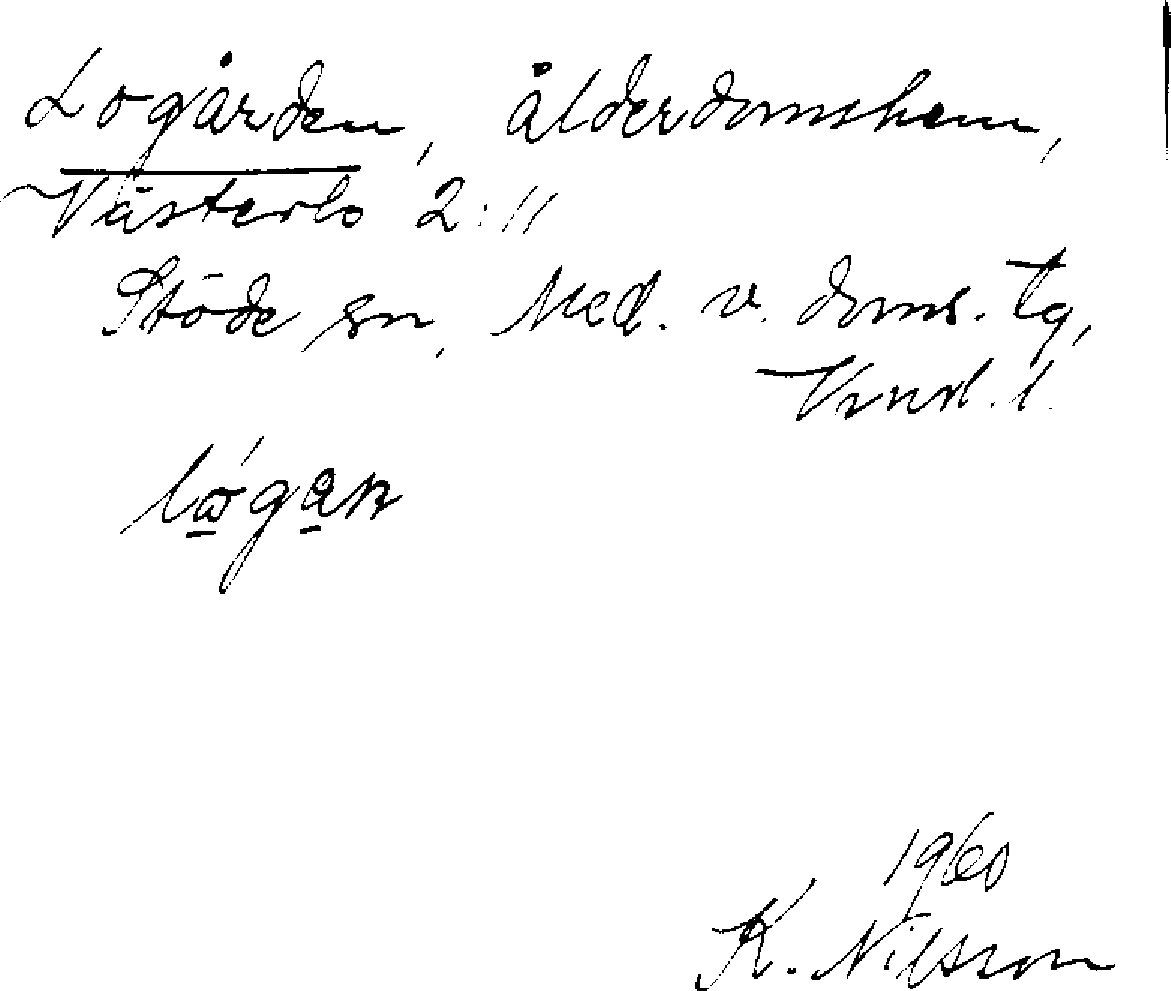 Logården, ålderdomshem,
Västerlo 2:11
Stöde sn, Med. v. doms. tg,
Vnrl. l.
1960
K. Nilsson